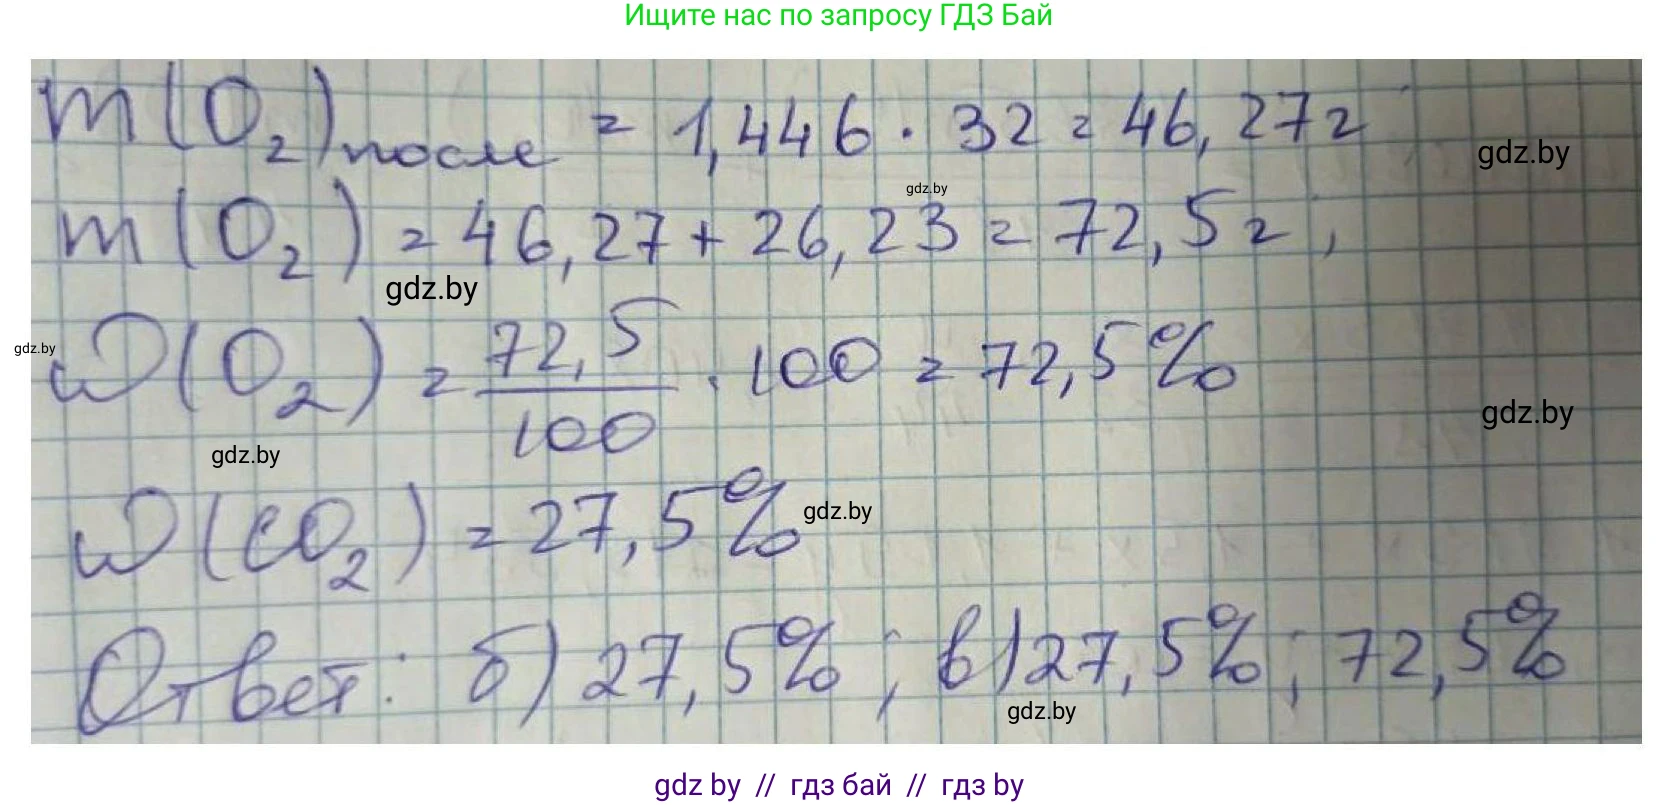 Ищите нас по запросу ГДЗ Бай
m(O₂)после = 1,446 · 32 = 46,27г
gdz.by
gdz.by
m(O₂) = 46,27 + 26,23 = 72,5г;
gdz.by
gdz.by
ω(O₂) = 72,5/100 · 100 = 72,5%
gdz.by
gdz.by
ω(CO₂) = 27,5%
gdz.by
Ответ: б) 27,5%; в) 27,5%; 72,5%
gdz.by
gdz by // гдз бай // гдз by